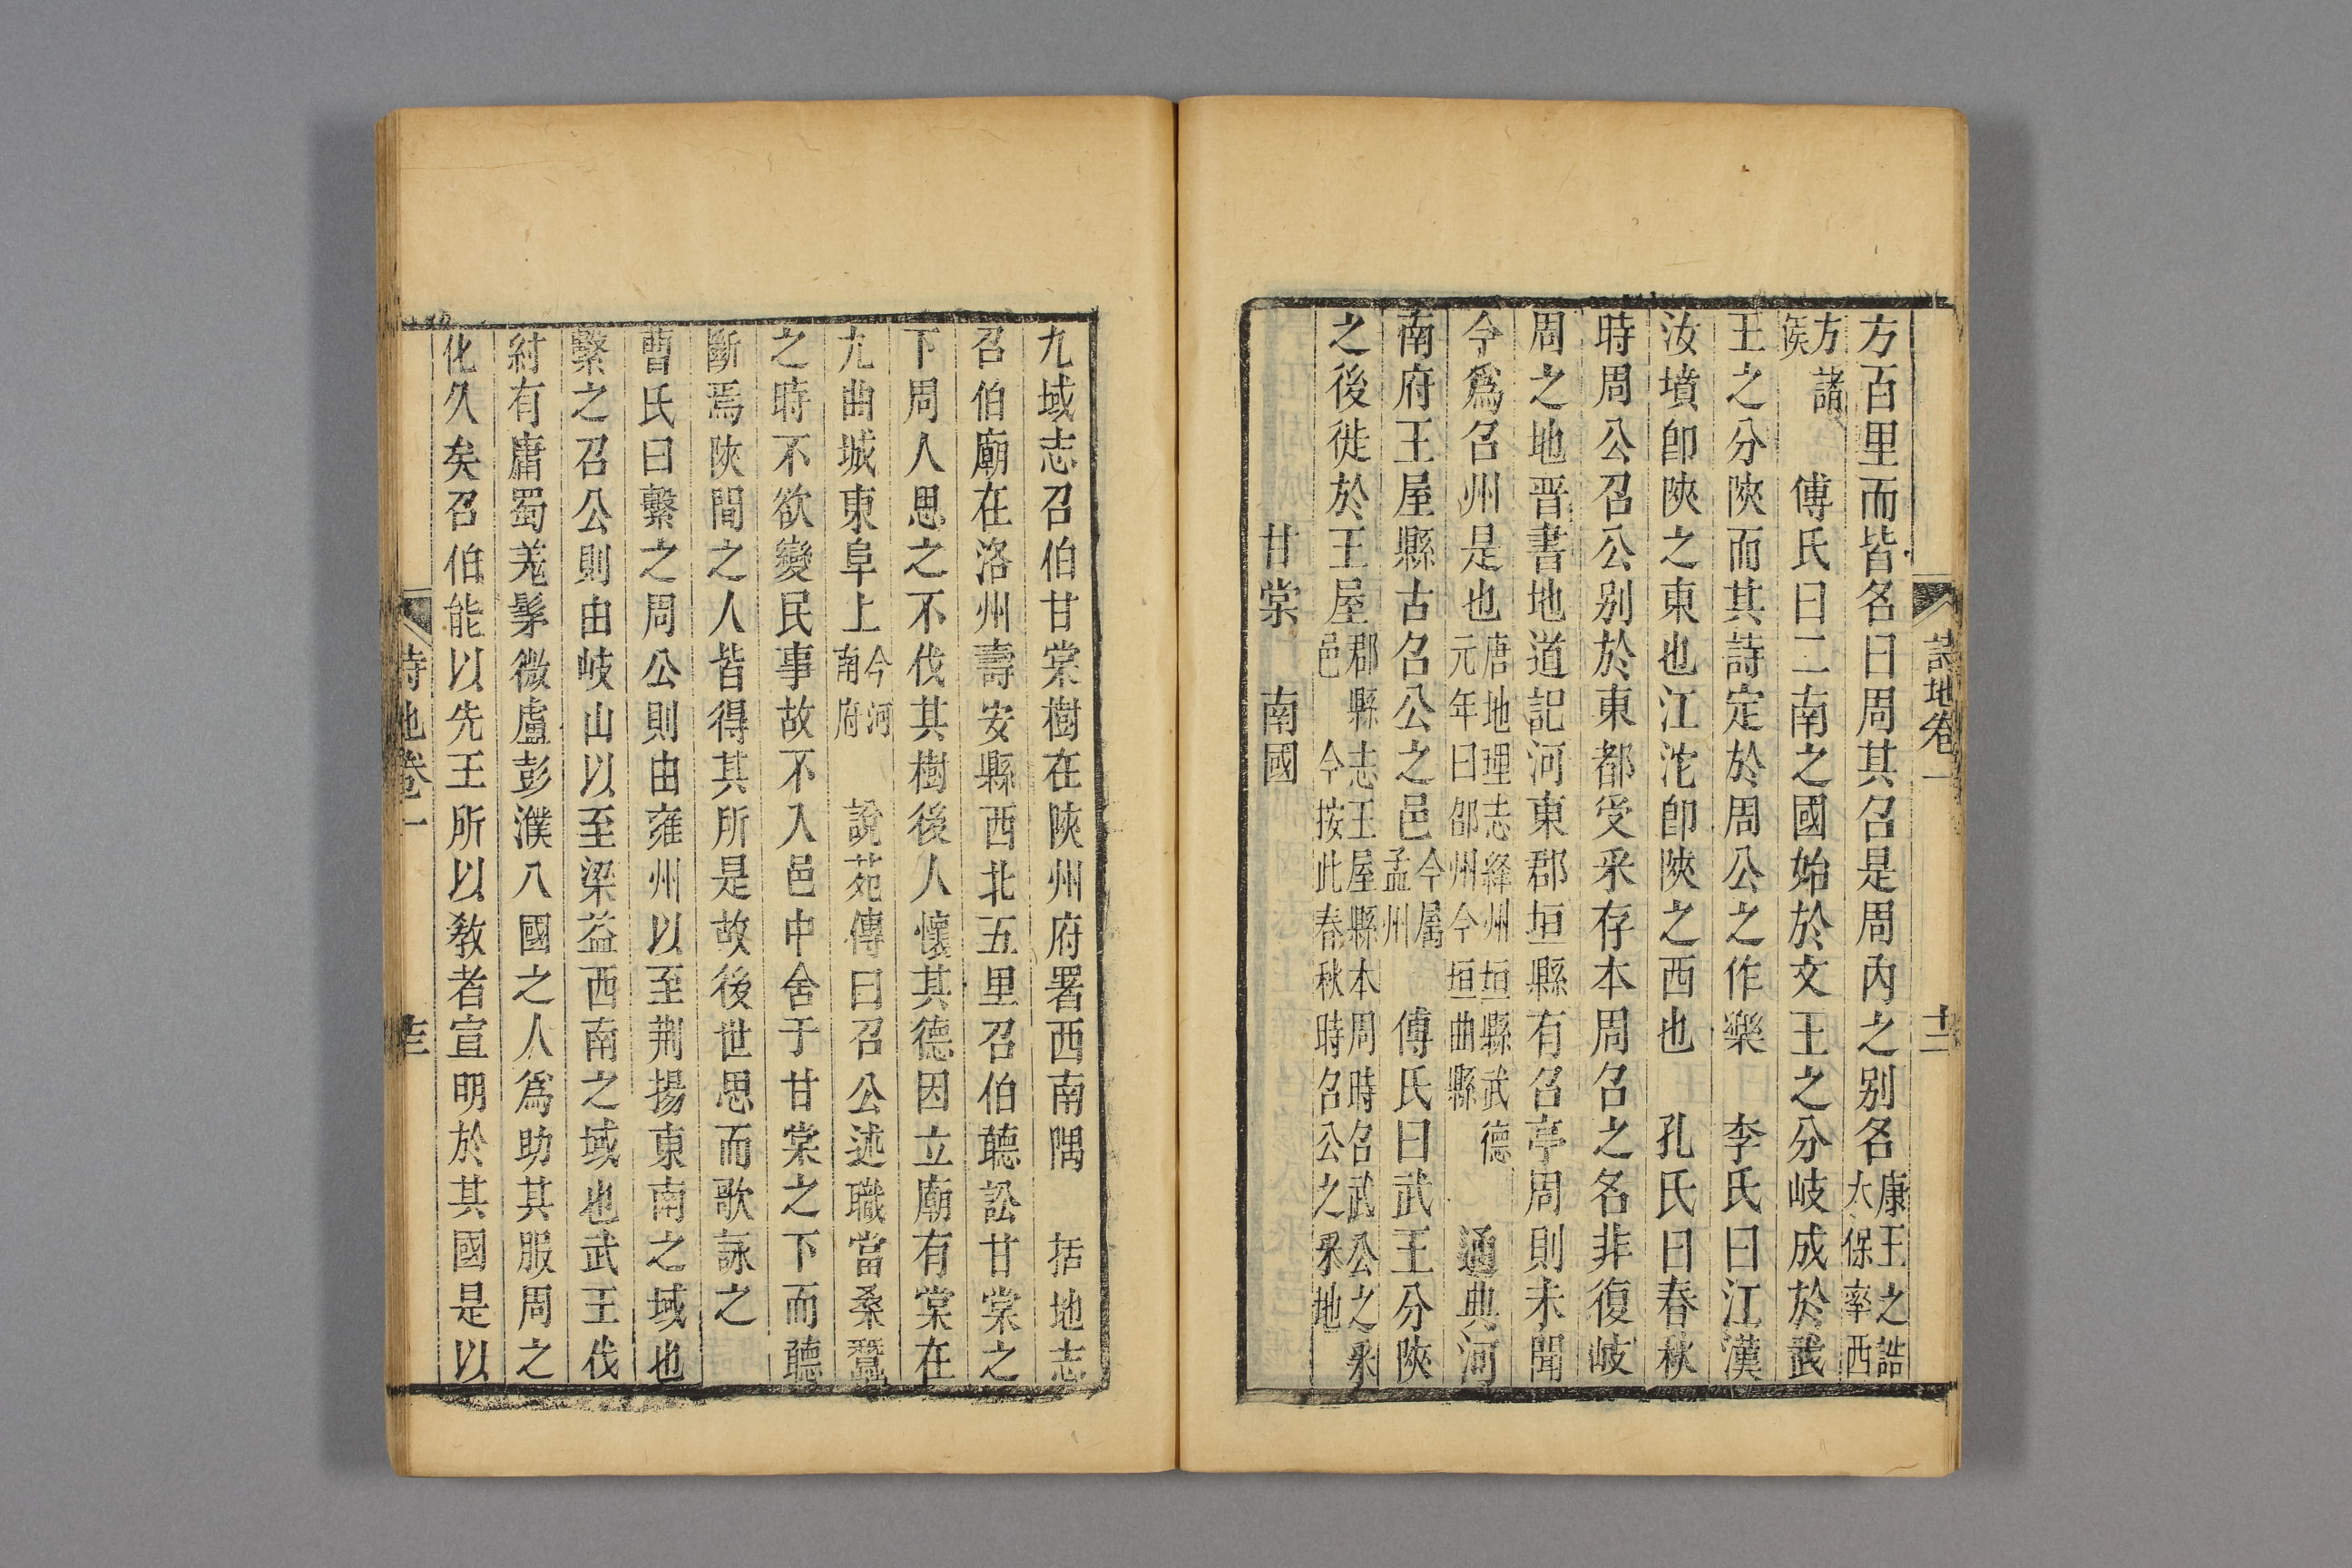 詩地卷一 十二
方百里而皆名曰周其召是周內之别名康王之誥太保率西
方諸侯 傅氏曰二南之國始於文王之分岐成於武
王之分陝而其詩定於周公之作樂 李氏曰江漢
汝墳卽陝之東也江沱卽陝之西也 孔氏曰春秋
時周公召公别於東都受采存本周召之名非復岐
周之地晋書地道記河東郡垣縣有召亭周則未聞
今爲召州是也唐地理志絳州垣縣武德元年曰邵州今垣曲縣 通典河
南府王屋縣古召公之邑今屬孟州 傅氏曰武王分陝
之後徙於王屋郡縣志王屋縣本周時召武公之采邑 今按此春秋時召公之采地
甘棠 南國
九域志召伯甘棠樹在陝州府署西南隅 括地志
召伯廟在洛州壽安縣西北五里召伯聽訟甘棠之
下周人思之不伐其樹後人懷其德因立廟有棠在
九曲城東阜上今河南府 說苑傳曰召公述職當桑蠶
之時不欲變民事故不入邑中舍于甘棠之下而聽
斷焉陝間之人皆得其所是故後世思而歌詠之
曹氏曰繫之周公則由雍州以至荆揚東南之域也
繫之召公則由岐山以至梁益西南之域也武王伐
紂有庸蜀羌髳微盧彭濮八國之人爲助其服周之
化久矣召伯能以先王所以教者宣明於其國是以
詩地卷一 十三